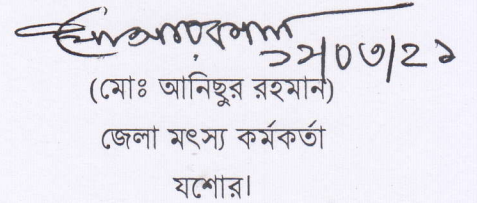 ১২/০৩/২১
(মোঃ আনিছুর রহমান)
জেলা মৎস্য কর্মকর্তা
যশোর।